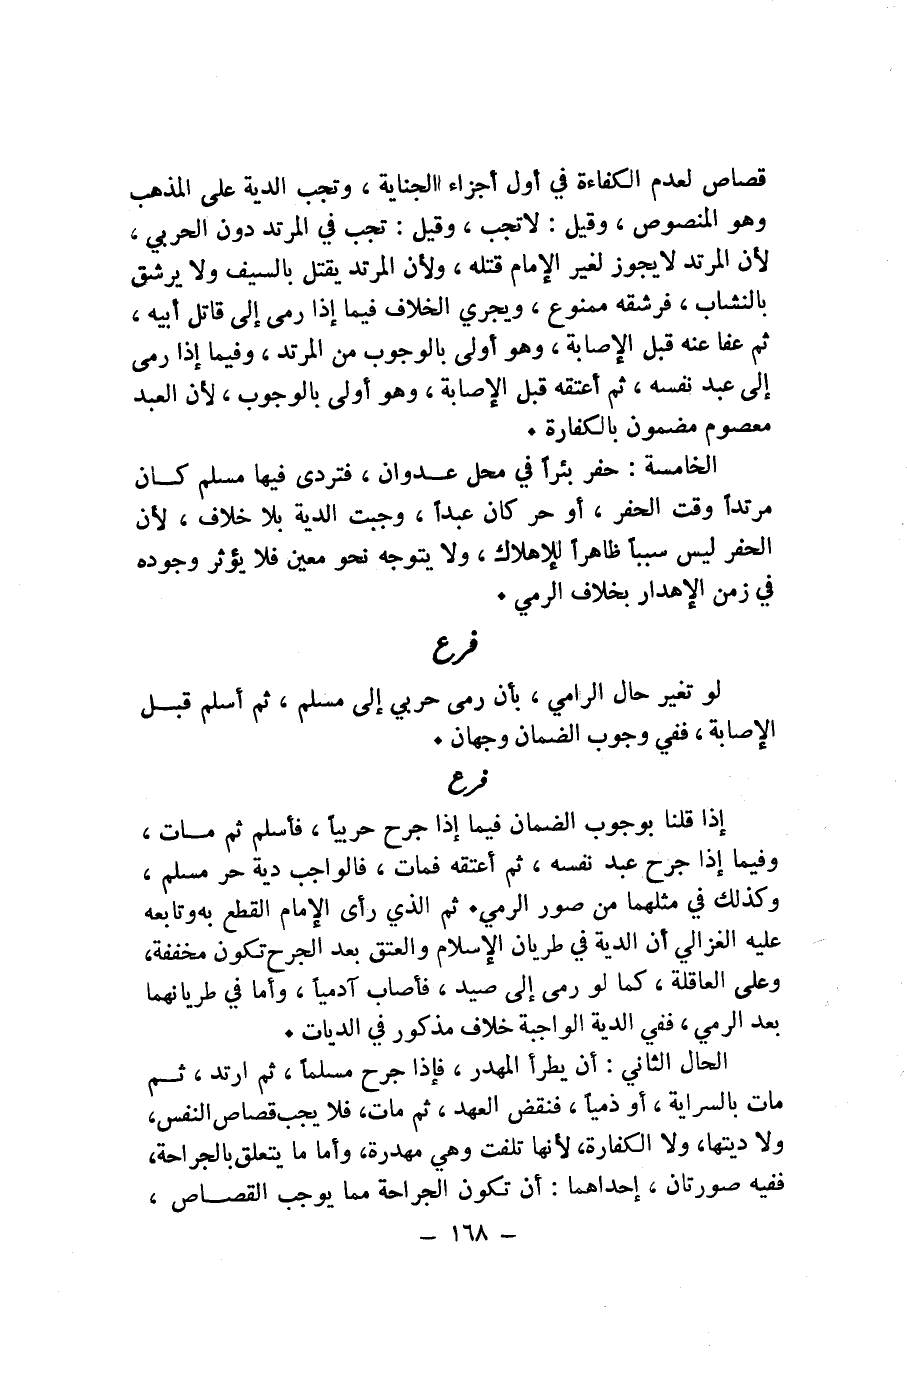 قصاص لعدم الكفاءة في أول أجزاء االجناية ، وتجب الدية على المذهب
وهو المنصوص ، وقيل : لاتجب ، وقيل : تجب في المرتد دون الحربي ،
لأن المرتد لايجوز لغير الإمام قتله ، ولأن المرتد يقتل بالسيف ولا يرشق
بالنشاب ، فرشقه ممنوع ، ويجري الخلاف فيما إذا رمى إلى قاتل أبيه ،
ثم عفا عنه قبل الإصابة ، وهو أولى بالوجوب من المرتد ، وفيما إذا رمى
إلى عبد نفسه ، ثم أعتقه قبل الإصابة ، وهو أولى بالوجوب ، لأن العبد
معصوم مضمون بالكفارة .
الخامسة : حفر بئراً في محل عـدوان ، فتردى فيها مسلم كـان
مرتداً وقت الحفر ، أو حر كان عبداً ، وجبت الدية بلا خلاف ، لأن
الحفر ليس سبباً ظاهراً للإهلاك ، ولا يتوجه نحو معين فلا يؤثر وجوده
في زمن الإهدار بخلاف الرمي .
فرع
لو تغير حال الرامي ، بأن رمى حربي إلى مسلم ، ثم أسلم قبـل
الإصابة ، ففي وجوب الضمان وجهان .
فرع
إذا قلنا بوجوب الضمان فيما إذا جرح حربياً ، فأسلم ثم مـات ،
وفيما إذا جرح عبد نفسه ، ثم أعتقه فمات ، فالواجب دية حر مسلم ،
وكذلك في مثلهما من صور الرمي. ثم الذي رأى الإمام القطع به وتابعه
عليه الغزالي أن الدية في طريان الإسلام والعتق بعد الجرح تكون مخففة،
وعلى العاقلة ، كما لو رمى إلى صيد ، فأصاب آدمياً ، وأما في طريانهما
بعد الرمي ، ففي الدية الواجبة خلاف مذكور في الديات .
الحال الثاني : أن يطرأ المهدر ، فإذا جرح مسلماً ، ثم ارتد ، ثـم
مات بالسراية ، أو ذمياً ، فنقض العهد ، ثم مات، فلا يجب قصاص النفس،
ولا ديتها، ولا الكفارة، لأنها تلفت وهي مهدرة، وأما ما يتعلق بالجراحة،
ففيه صورتان ، إحداهما : أن تكون الجراحة مما يوجب القصـاص ،
– ١٦٨ –